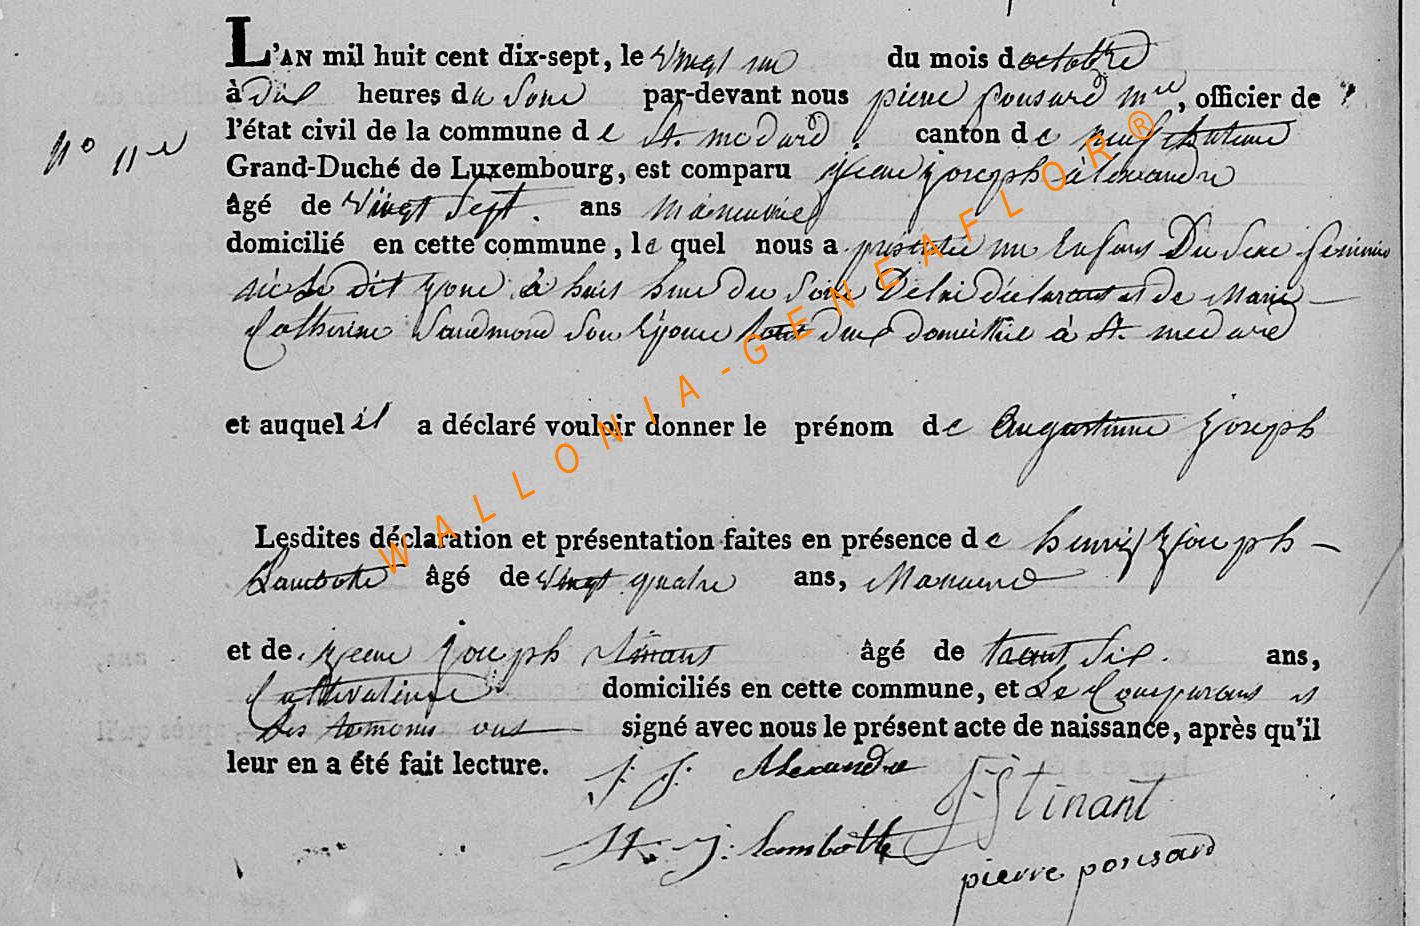 L'AN mil huit cent dix-sept, le vingt un du mois doctobre
à dix heures du Soire par-devant nous pierre ponsard mre, officier de
l'état civil de la commune de St. medard canton de neufchateau
No 11
Grand-Duché de Luxembourg, est comparu jean joseph alexandre
âgé de vingt Sept. ans manuvrie
domicilié en cette commune, lequel nous a presentée un Enfans Du Sexe feminin
née Le dit jour à huit heure du Soire De lui déclarant et de Marie
Catherine Son Epouse tout deux domicilié à St. medard
et auquel il a déclaré vouloir donner le prénom de Augustinne joseph
Lesdites déclaration et présentation faites en présence de henri joseph
Lambotte âgé de vingt quatre ans,
et de jean joseph Stinant âgé de trant Six. ans,
Cultivateure domiciliés en cette commune, et Le Comparans et
Les temonis ont signé avec nous le présent acte de naissance, après qu'il
leur en a été fait lecture. j. j. Alexandre
J-J Stinant
H. j. Lambotte
pierre ponsard
WALLONIA-GENEAFLOR®